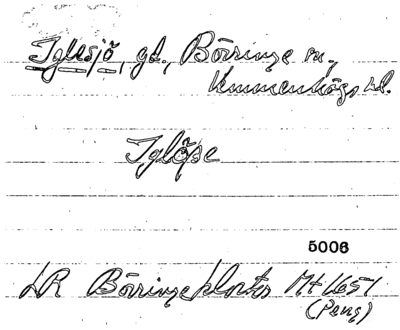 Iglesjö, gd., Börringe sn,
Vemmenhögs hd.
Iglöse
5006
LR Börringekloster Mt 1651
(Pens)